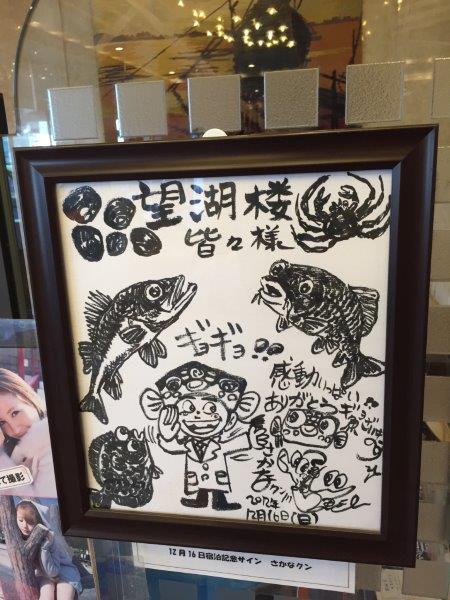 望湖楼
皆々様
ギョギョ!!
感動いっぱい
ありがとうギョざいます
さかなクン
2012年
12月16日(日)
て撮影
12月16日宿泊記念サイン さかなクン